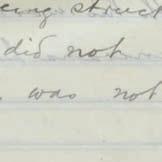 being struck
did not
was not